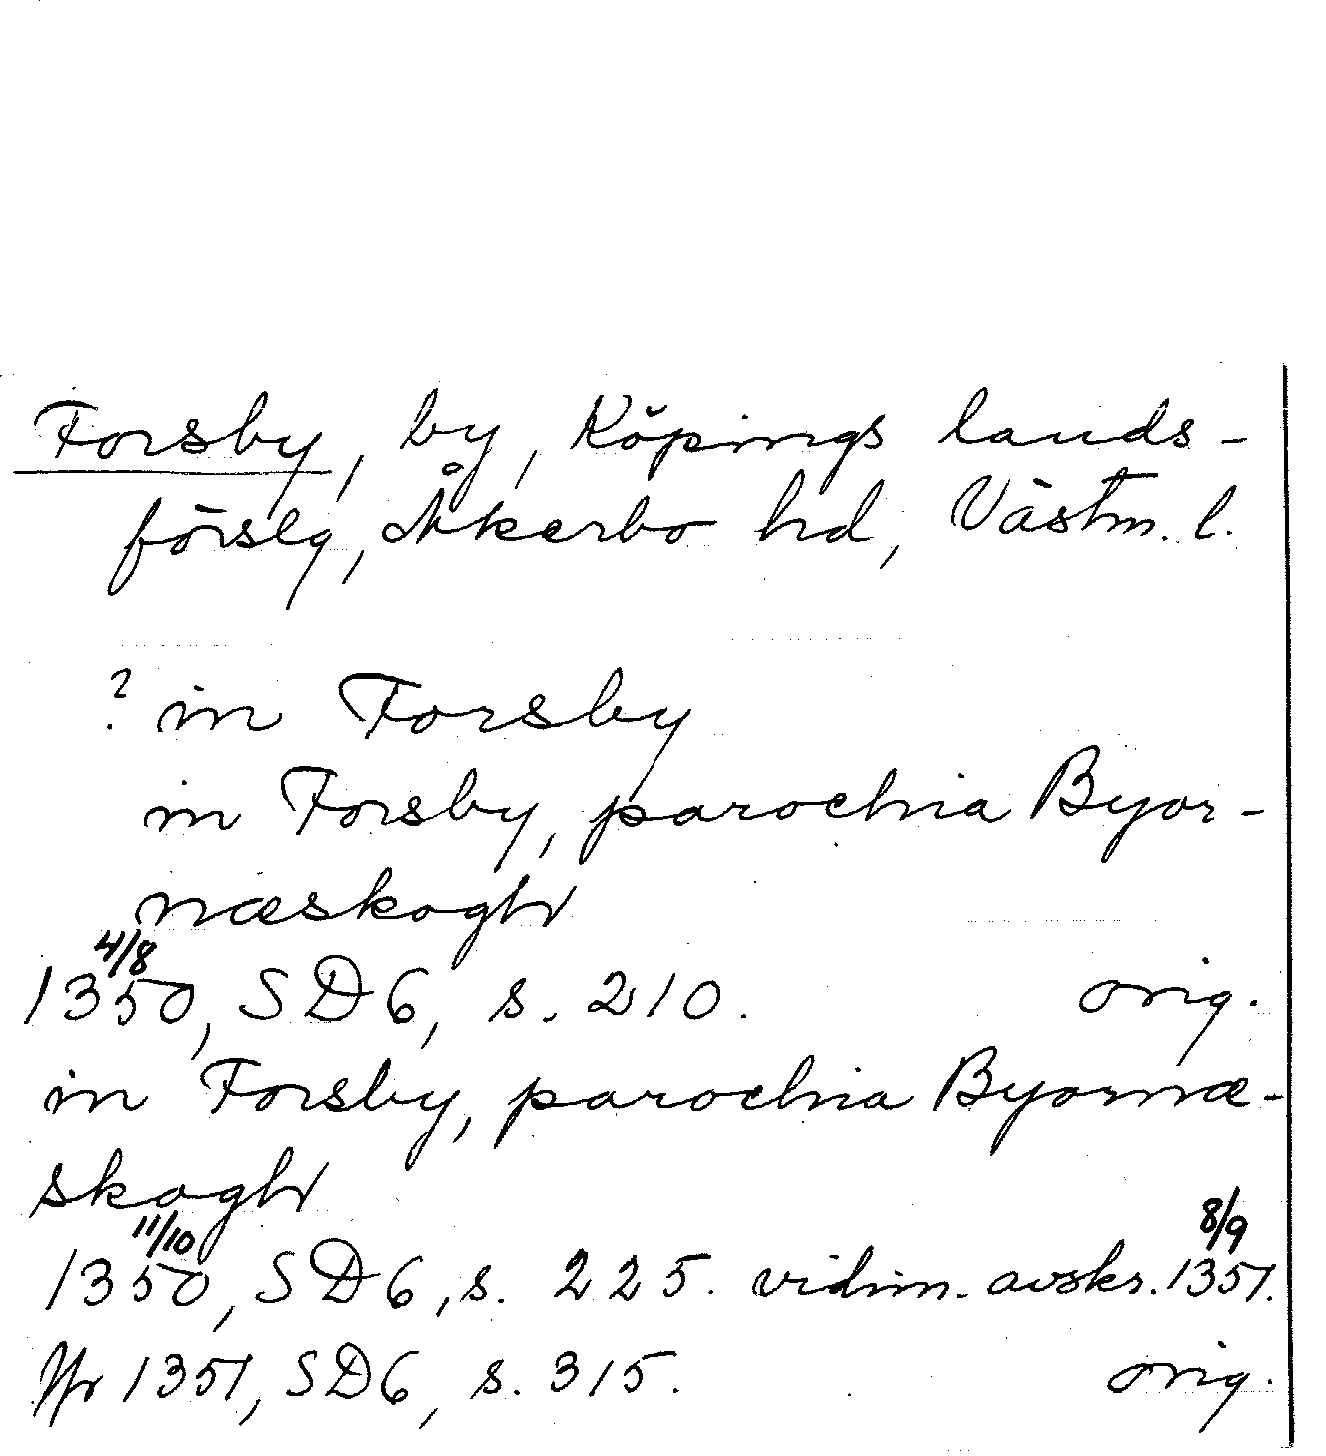 Forsby, by, Köpings lands-
förslg, Åkerbo hd, Västm. l.
? in Forsby
in Forsby, parochia Byor-
næskogh
4/8
1350, SD6, s. 210. orig.
in Forsby, parochia Byornæ-
skogh
11/10 8/9
1350, SD6, s. 225. vidim. avskr. 1351.
Jfr 1351, SD6, s. 315. orig.